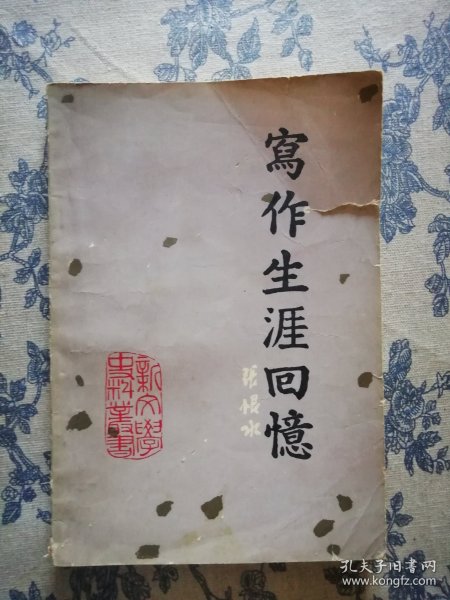 寫作生涯回憶
張恨水
新文學
史料叢書
孔夫子旧书网
www.kongfz.com